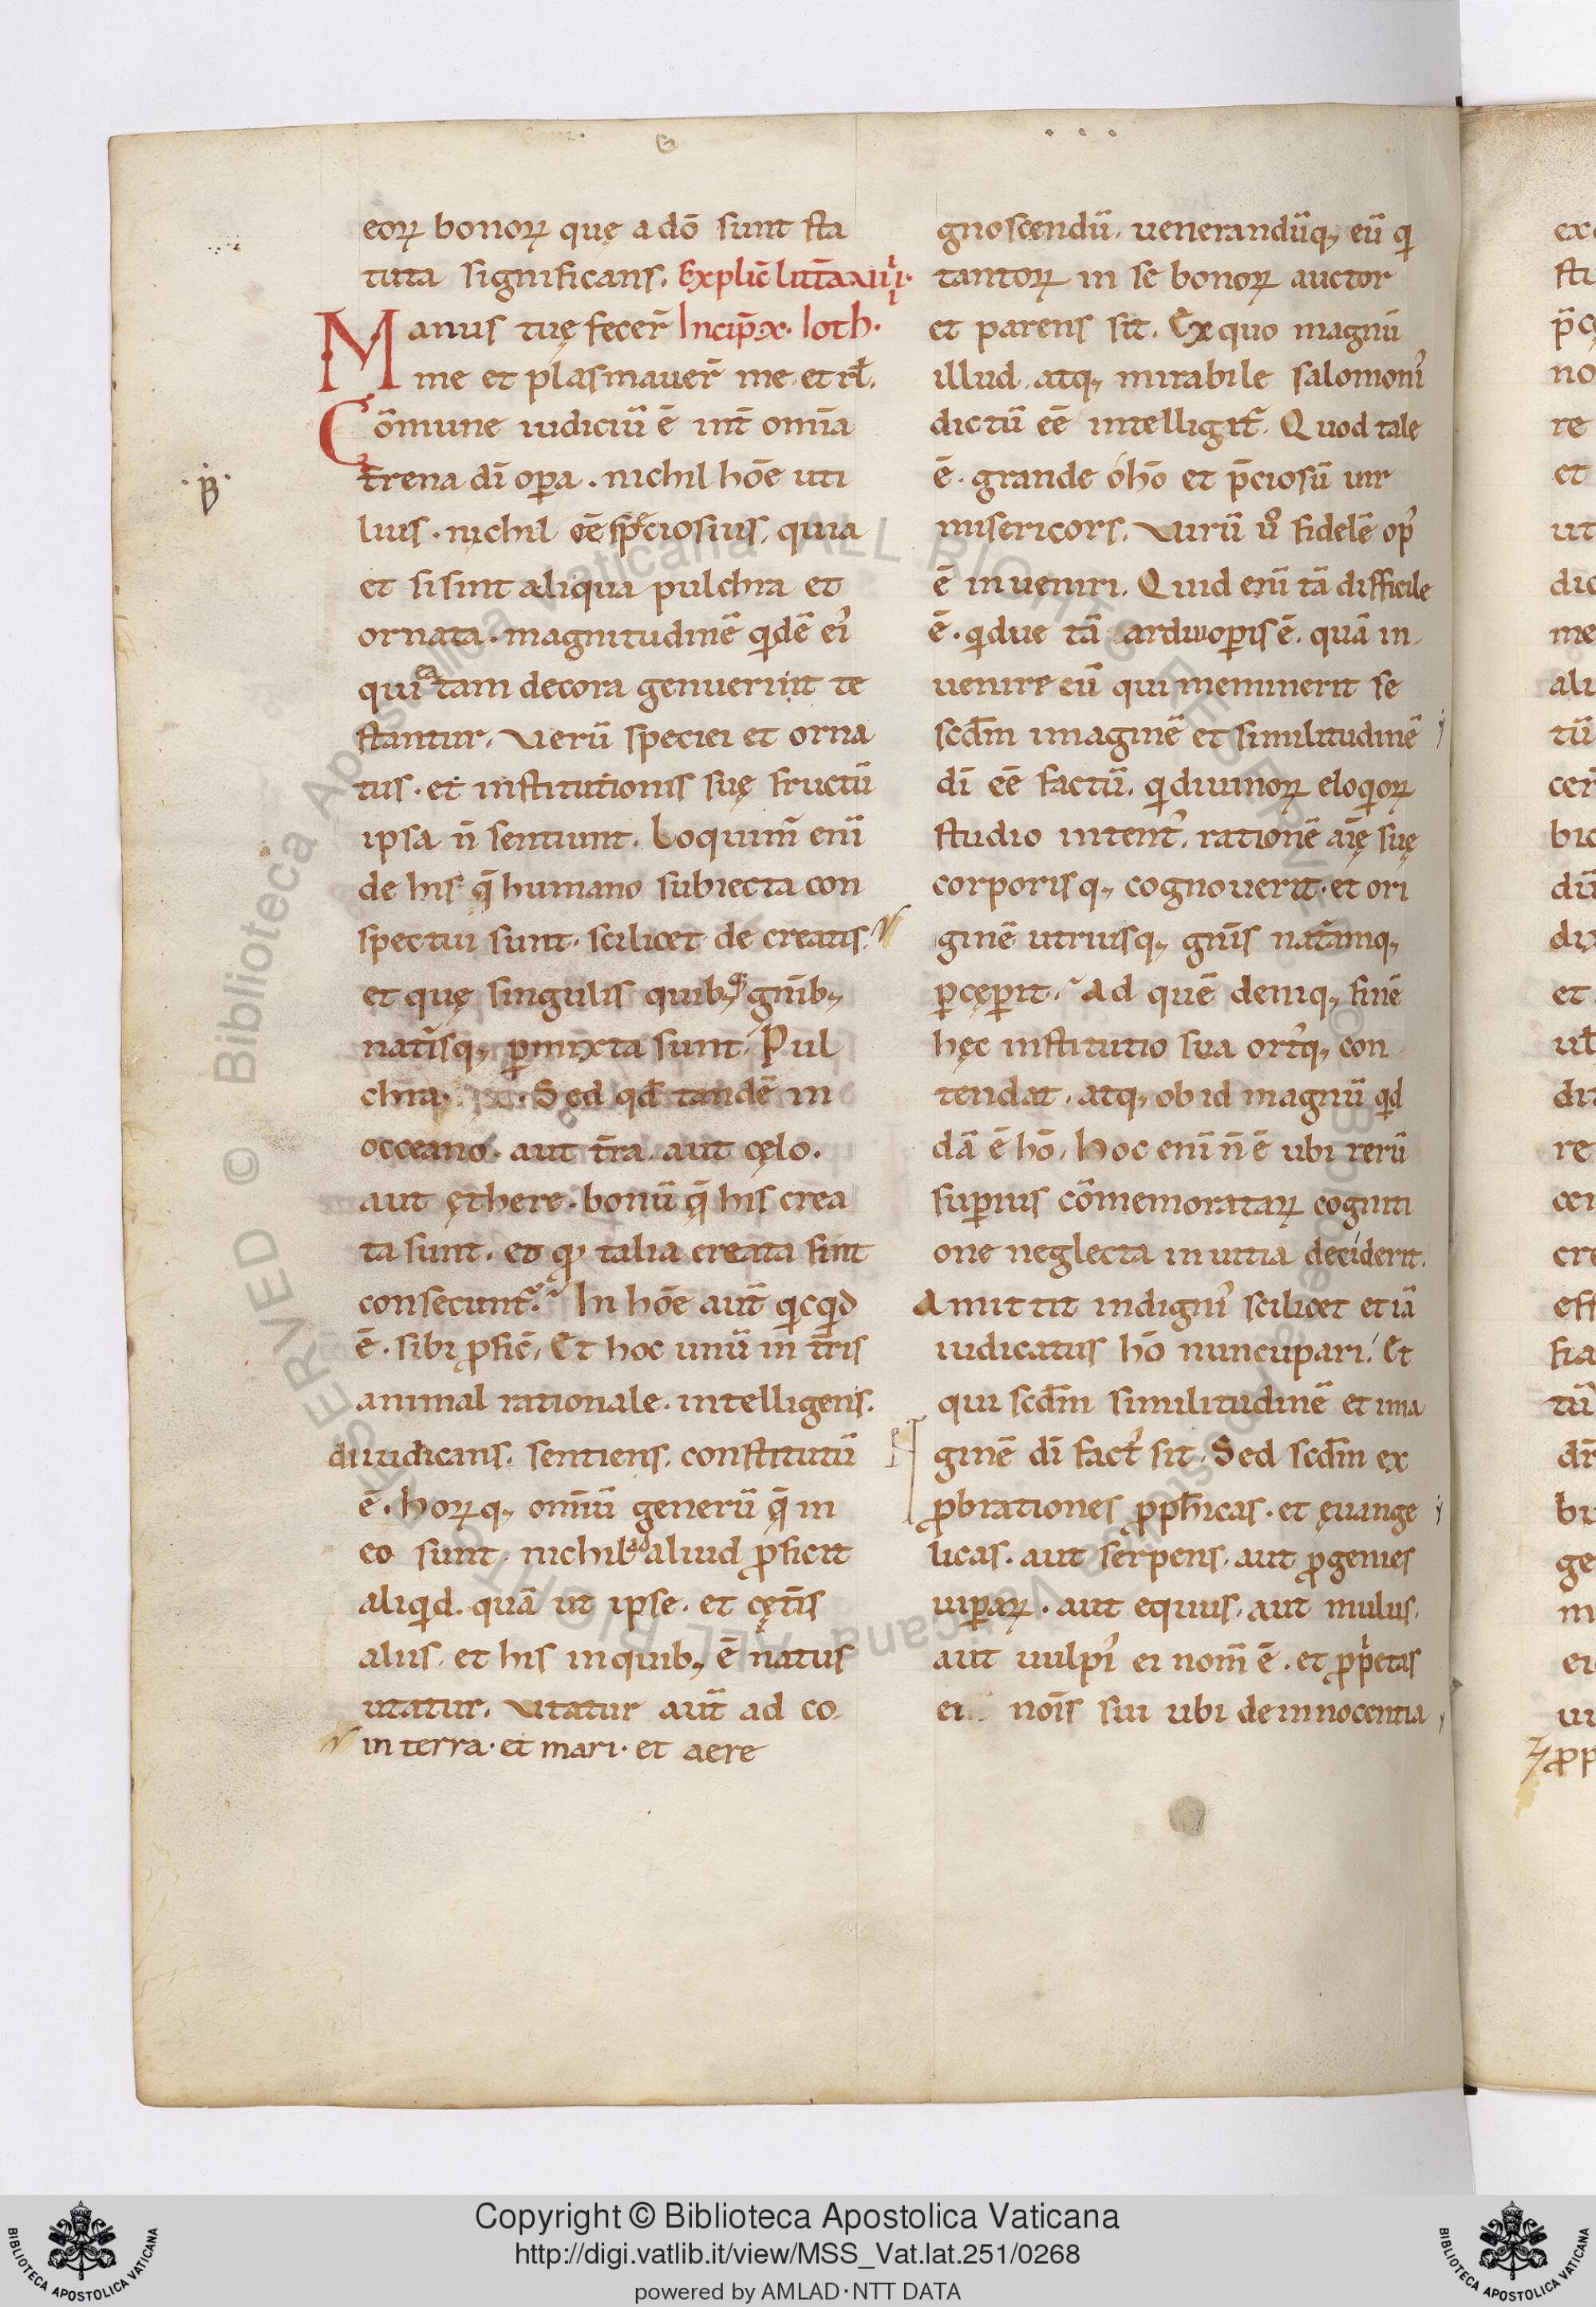 eoꝝ bonoꝝ quę a dō sunt sta
tuta significans. Explic̄ litt̄a
Manus tuę fecer̄ Incip̄ .x. Ioth.
me et plasmauer̄ me. et rł.
Cōmune iudiciū ē int̄ om̄ia
t̄rena dī oꝑa. nichil hōe uti
.ꝑ.
lius. nichil eē sp̄ciosius. quia
et si sint aliqua pulchra et
ornata. magnitudinē qidē eī
quia tam decora genuerint te
stantur. Uerū speciei et orna
tus. et institutionis suę fructū
ipsa n̄ sentiunt. Loquim̄ enī
de his q̄ humano subiecta con
spectui sunt. scilicet de creatis.
et quę singulis quibꝫ gn̄ibꝫ
nat̄isqꝫ ꝑmixta sunt. Pul
chra. Sed qđ tandē in
occeano. aut t̄ra. aut cęlo.
aut ęthere. bonū q̄ his crea
ta sunt. eo qꝫ talia creata sint
consecunt̄. In hōe aut̄ qicqid
ē. sibi ꝓfic̄. Et hoc unū in t̄ris
animal rationale. intelligens.
diiudicans. sentiens. constitutū
ē. hoꝝqꝫ om̄iū generū q̄ in
eo sunt. nichil ad aliud ꝓficit
aliqid. quā ut ipse. et cęt̄is
aliis. et his in quibꝫ ē natus
utatur. Utatur aut̄ ad co
in terra. et mari. et aere
gnoscendū. uenerandūqꝫ eū qi
tantoꝝ in se bonoꝝ auctor
et parens sit. Ex quo magnū
illud. atqꝫ mirabile salomonı᾽
dictū eē intelligit̄. Quod tale
ē. grande ó hō et p̄ciosū uir
misericors. Uirū ů fidelē op᾽
ē inueniri. Quid enī tā difficile
ē. qidue tā ardui oꝑis ē. quā in
uenire eū qui meminerit se
scd̄m imaginē et similitudinē
dī eē factū. qi diuinoꝝ eloqioꝝ
studio intent᾽. rationē aīę suę
corporisqꝫ cognouerit. et ori
ginē utriusqꝫ gn̄is nat̄amqꝫ
ꝑcęperit. Ad quē deniqꝫ finē
hęc institutio sua ort᾽qꝫ con
tendat. atqꝫ ob id magnū qid
dā ē hō. Hoc enī n̄ ē ubi rerū
suꝑius cōmemorataꝝ cogniti
one neglecta in uitia deciderit.
Amittit indign᾽ scilicet et iā
iudicatus hō nuncupari. Et
qui scd̄m similitudinē et ima
ginē dī fact᾽ sit. Sed scd̄m ex
ꝓbrationes ꝓph̄icas. et ęuange
licas. aut serpens. aut ꝓgenies
uiꝑaꝝ. aut equus. aut mulus.
aut uulpı᾽ ei nom̄ ē. et ꝓpͥetas
ei noīs sui ubi de innocentia
Copyright © Biblioteca Apostolica Vaticana
http://digi.vatlib.it/view/MSS_Vat.lat.251/0268
powered by AMLAD·NTT DATA